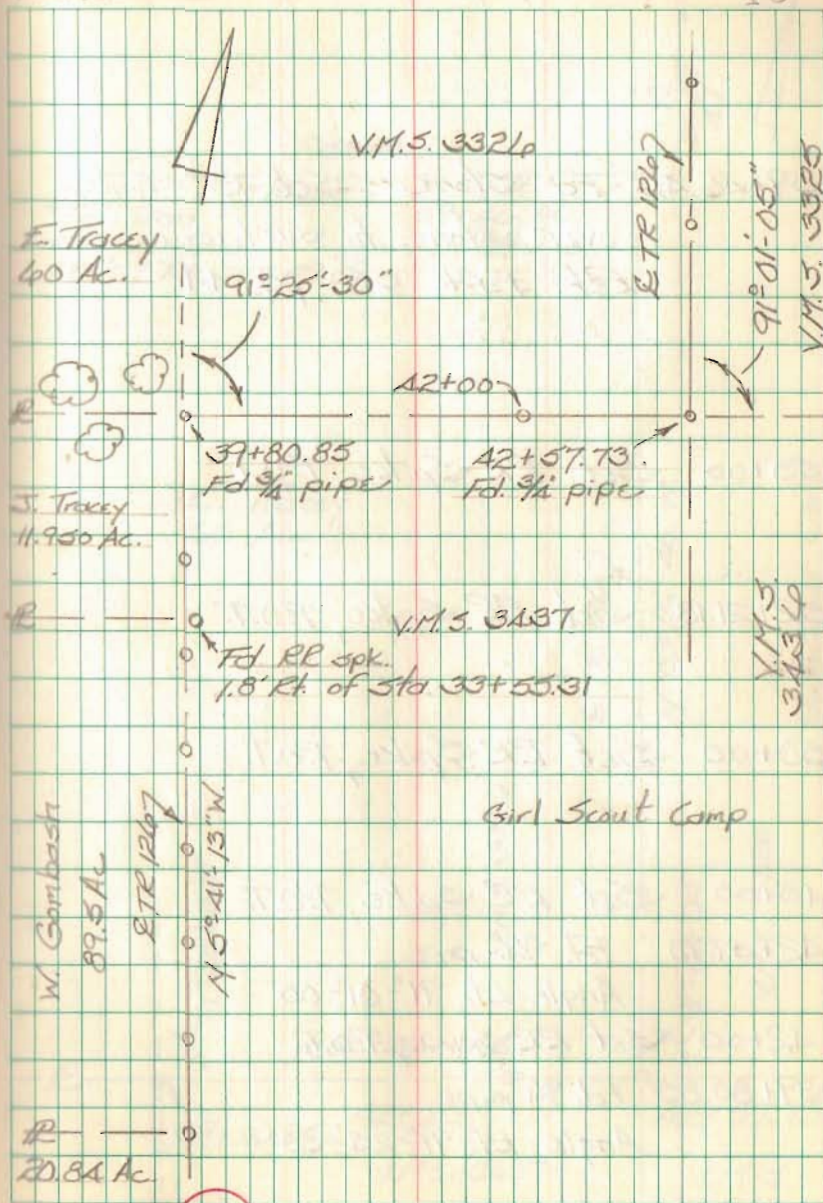 V.M.S. 3326
℄ TR 1267
E. Tracey
60 Ac.
91°-25'-30"
91°-01'-05"
V.M.S. 3325
42+00
39+80.85
Fd. 3/4" pipe
42+57.73
Fd. 3/4" pipe
J. Tracey
11.950 Ac.
V.M.S. 3437
V.M.S.
3436
Fd RR spk.
1.8' Rt. of Sta 33+55.31
Girl Scout Camp
W. Gombash
89.5 Ac
℄ TR 1267
N. 5°-41'-13" W.
20.84 Ac.